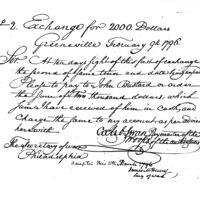 № 2. Exchange for 2000. Dollars
Greeneville February 9th 1796.
Sir At ten days sight of this first of exchange
the second of same tenor and date being unpaid
Please to pay to John Bastard or order
the sum of two thousand dollars which
sum I have received of him in Cash, and
Charge the same to my account as per advice
herewith
Caleb Swan Paymaster of the
Troops of the
The Secretary of War
Philadelphia
Accepted March 1796
James McHenry
Secy of War